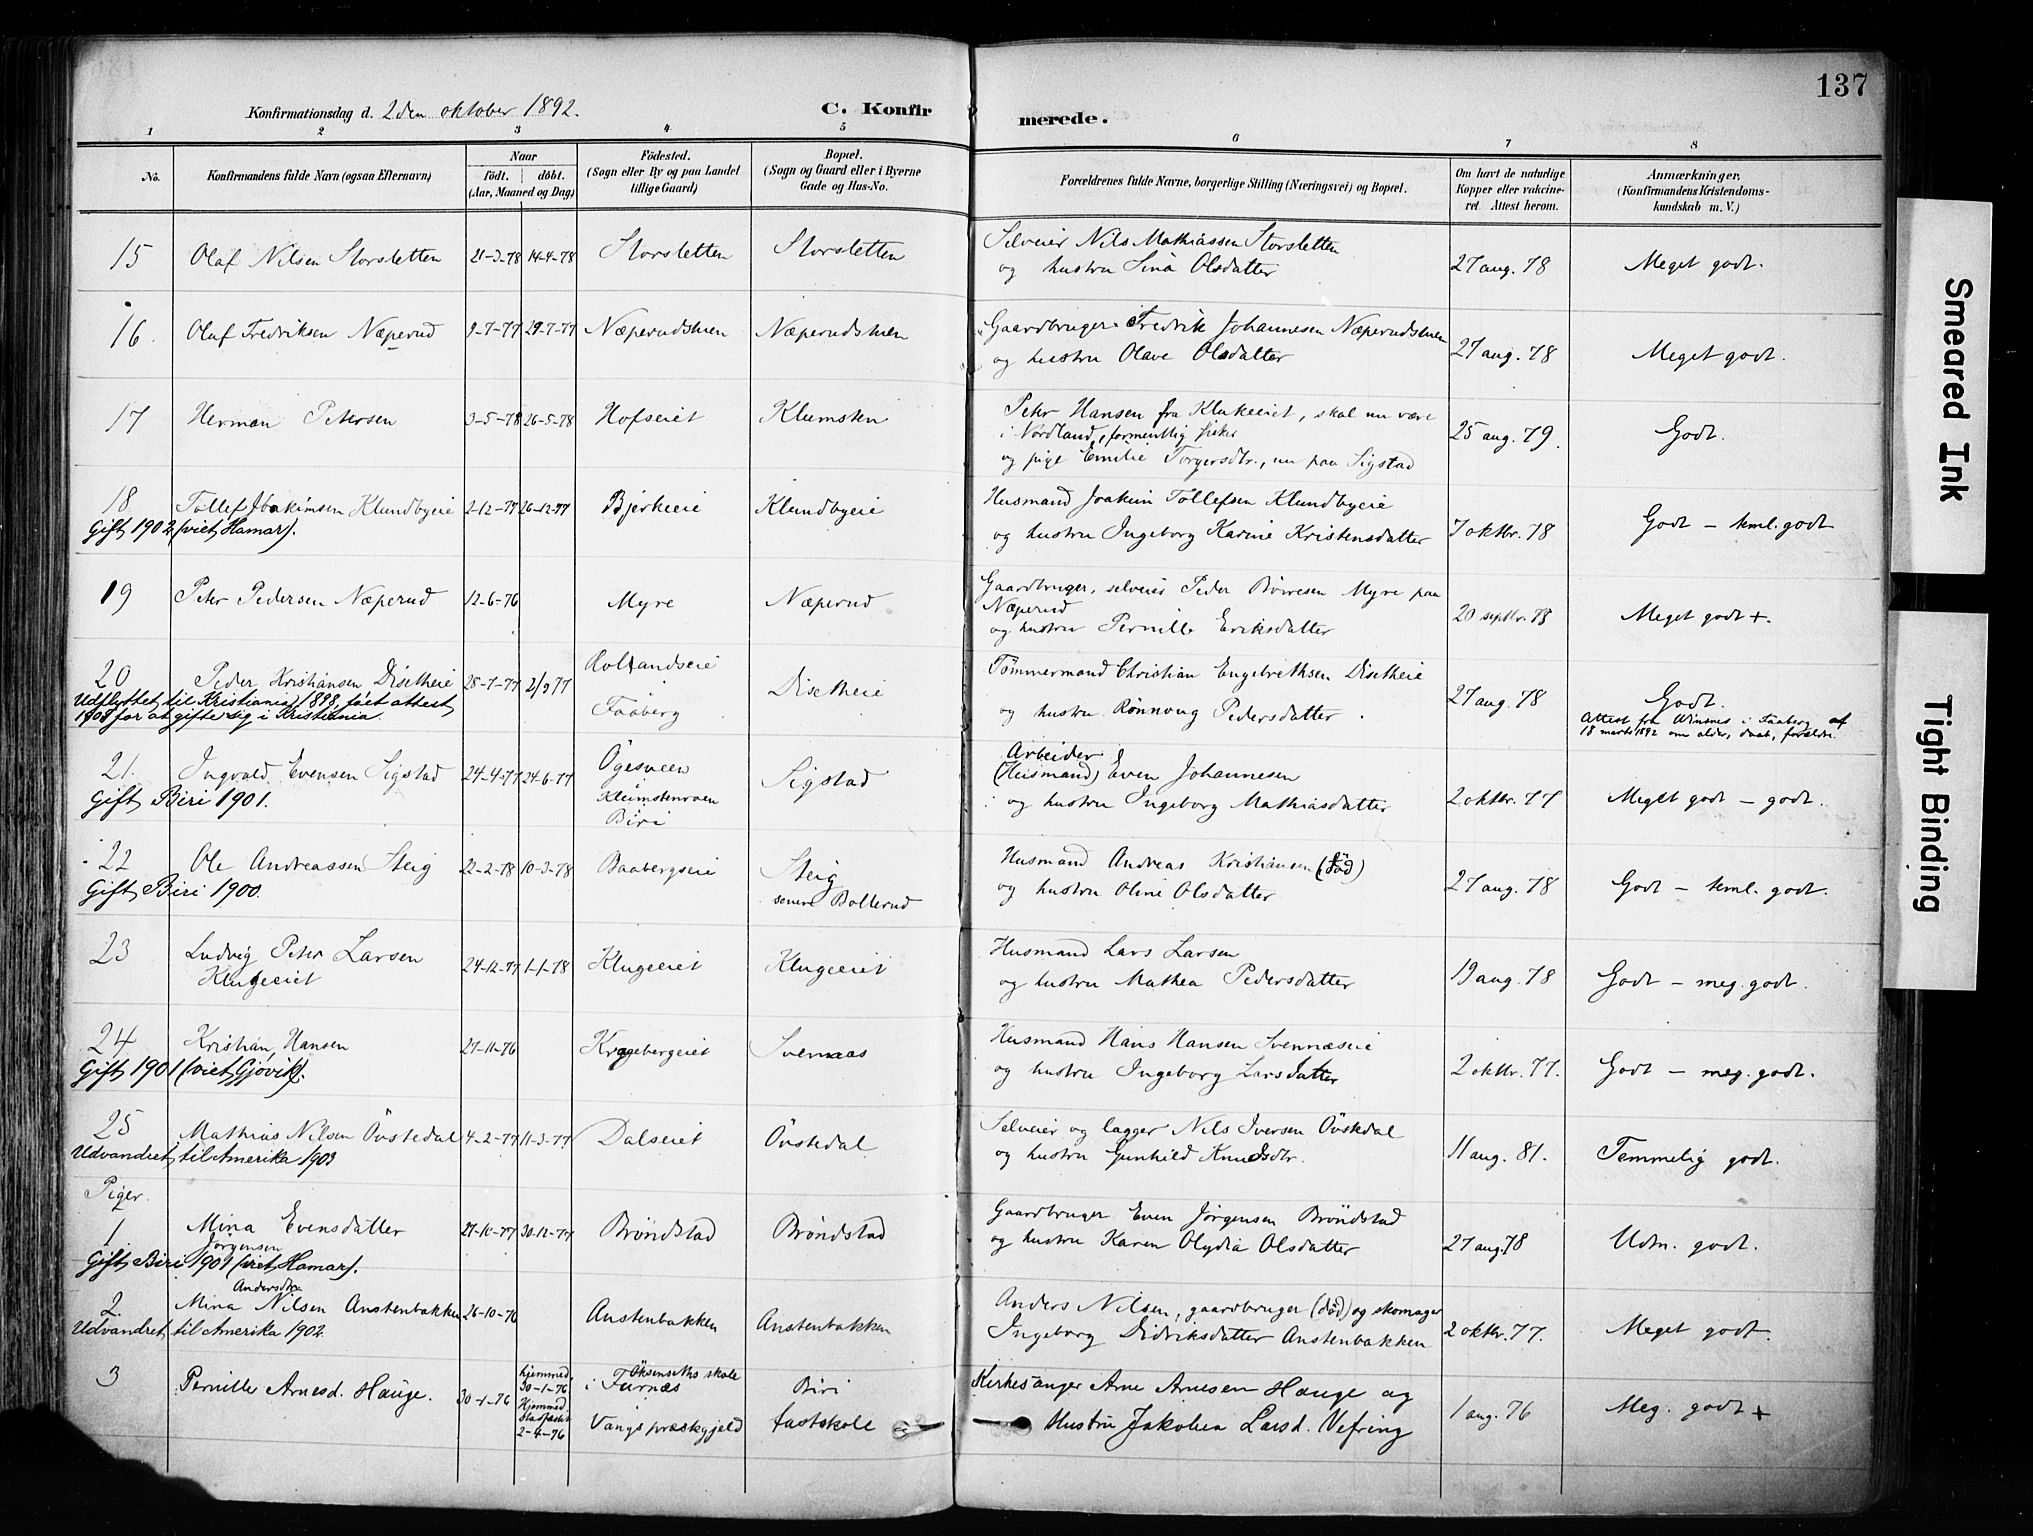 137
Konfirmationsdag d. 2den oktober 1892.
C. Konfirmerede.
1 2 3 4 5 6 7 8
No.
Konfirmandens fulde Navn (ogsaa Efternavn)
Naar
födt. döbt.
(Aar, Maaned og Dag)
Födested.
(Sogn eller By og paa Landet
tillige Gaard)
Bopæl.
(Sogn og Gaard eller i Byerne
Gade og Hus-No.
Forældrenes fulde Navne, borgerlige Stilling (Næringsvei) og Bopæl.
Om havt de naturlige
Kopper eller vakcineret. Attest herom.
Anmærkninger.
(Konfirmandens Kristendomskundskab m. V.)
15 Olaf Nilsen Storsletten 21-3-78 14-4-78 Storsletten Storsletten
Selveier Nils Mathiassen Storsletten
og hustru Sina Olsdatter 27 aug. 78 Meget godt.
16. Oluf Fredriksen Næperud 9-7-77 29-7-77 Næperudstuen Næperudstuen
Gaardbruger Fredrik Johannesen Næperudstuen
og hustru Olave Olsdatter 27 aug. 78 Meget godt.
17 Herman Petersen 3-5-78 26-5-78 Hofseiet Klumsten
Peter Hansen fra Klukeeiet, skal nu være
i Nordland, formentlig fisker
og pige Emilie Torgersdtr., nu paa Sigstad 25 aug. 79. Godt.
18 Tollef Joakimsen Klundbyeie 2-12-77 26-12-77 Bjerkeeie Klundbyeie
Gift 1902 (viet Hamar).
Husmand Joakim Tollefsen Klundbyeie
og hustru Ingeborg Karine Kristensdatter 7 oktbr. 78 Godt - teml. godt
19 Peter Pedersen Næperud 12-6-76 Myre Næperud
Gaardbruger, selveier Peder Börresen Myre paa
Næperud
og hustru Pernille Eriksdatter 20 septbr. 78 Meget godt +.
20 Peder Kristiansen Disetheie 28-7-77 2/9 77 Disetheie
Udflyttet til Kristiania 1898, faaet attest
1908 for at gifte sig i Kristiania.
Faaberg
Tömmermand Christian Engebrethsen Disetheie
og hustru Rönnoug Pedersdatter. 27 aug. 78 Godt.
Attest fra Winsnes i Faaberg af
18 marts 1892 om alder, daab, forældre.
21. Ingvald Evensen Sigstad 24-4-77 24-6-77 Ögesveen Sigstad
Klumstenroen
Gift Biri 1901. Biri
Arbeider
(Husmand) Even Johannesen
og hustru Ingeborg Mathiasdatter 2 oktbr. 77 Meget godt - godt.
22 Ole Andreassen Steig 22-2-78 10-3-78 Baabergseie Steig
senere Bollerud
Gift Biri 1900.
Husmand Andreas Kristiansen (död)
og hustru Oline Olsdatter 27 aug. 78 Godt - teml. godt.
23 Ludvig Peter Larsen
Klugeeiet 24-12-77 1-1-78 Klugeeiet Klugeeiet
Husmand Lars Larsen
og hustru Mathea Pedersdatter 19 aug. 78 Godt - meg. godt.
24 Kristian Hansen 27-11-76 Kragebergeiet Svennaas
Gift 1901 (viet Gjövik).
Husmand Hans Hansen Svennæseie
og hustru Ingeborg Larsdatter 2 oktbr. 77. Godt - meg. godt.
25 Mathias Nilsen Övstedal 4-2-77 11-3-77 Dalseiet Övstedal
Udvandret til Amerika 1903
Selveier og lagger Nils Iversen Övstedal
og hustru Gunhild Knudsdtr. 11 aug. 81. Temmelig godt.
Piger.
1 Mina Evensdatter 27-10-77 30-12-77 Bröndstad Bröndstad
Jörgensen
Gift Biri 1901 (viet Hamar).
Gaardbruger Even Jörgensen Bröndstad
og hustru Karen Olydia Olsdatter 27 aug. 78 Udm. godt.
2. Andersdtr.
Mina Nilsen Anstenbakken 26-10-76 Anstenbakken Anstenbakken
Udvandret til Amerika 1902.
Anders Nilsen, gaardbruger (död) og skomager
Ingeborg Didriksdatter Anstenbakken 2 oktbr. 77. Meget godt.
3 Pernille Arnesd. Hauge. 30-1-76
hjemmed.
30-1-76
Hjemmed.
Stadfæstet
2-4-76
Öksenseths skole
i Furnæs
Vangs præstegjeld
Biri
fastskole
Kirkesanger Arne Arnesen Hauge og
Hustru Jakobea Larsd. Vefring 1 aug. 76 Meg. godt +
Smeared Ink
Tight Binding